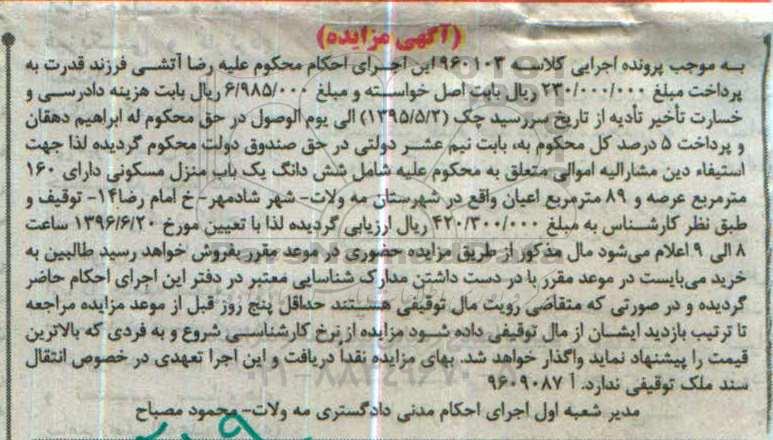 (آگهی مزایده)
به موجب پرونده اجرایی کلاسه ۹۶۰۱۰۳ این اجرای احکام محکوم علیه رضا آتشی فرزند قدرت به
پرداخت مبلغ ۲۳۰/۰۰۰/۰۰۰ ریال بابت اصل خواسته و مبلغ ۶/۹۸۵/۰۰۰ ریال بابت هزینه دادرسی و
خسارت تأخیر تأدیه از تاریخ سررسید چک (۱۳۹۵/۵/۲) الی یوم الوصول در حق محکوم له ابراهیم دهقان
و پرداخت ۵ درصد کل محکوم به، بابت نیم عشر دولتی در حق صندوق دولت محکوم گردیده لذا جهت
استیفاء دین مشارالیه اموالی متعلق به محکوم علیه شامل شش دانگ یک باب منزل مسکونی دارای ۱۶۰
مترمربع عرصه و ۸۹ مترمربع اعیان واقع در شهرستان مه ولات- شهر شادمهر- خ امام رضا۱۴- توقیف و
طبق نظر کارشناس به مبلغ ۴۲۰/۳۰۰/۰۰۰ ریال ارزیابی گردیده لذا با تعیین مورخ ۱۳۹۶/۶/۲۰ ساعت
۸ الی ۹ اعلام می‌شود مال مذکور از طریق مزایده حضوری در موعد مقرر بفروش خواهد رسید طالبین به
خرید می‌بایست در موعد مقرر با در دست داشتن مدارک شناسایی معتبر در دفتر این اجرای احکام حاضر
گردیده و در صورتی که متقاضی رویت مال توقیفی هستند حداقل پنج روز قبل از موعد مزایده مراجعه
تا ترتیب بازدید ایشان از مال توقیفی داده شود مزایده از نرخ کارشناسی شروع و به فردی که بالاترین
قیمت را پیشنهاد نماید واگذار خواهد شد. بهای مزایده نقدا دریافت و این اجرا تعهدی در خصوص انتقال
سند ملک توقیفی ندارد. آ ۹۶۰۹۰۸۷
مدیر شعبه اول اجرای احکام مدنی دادگستری مه ولات- محمود مصباح